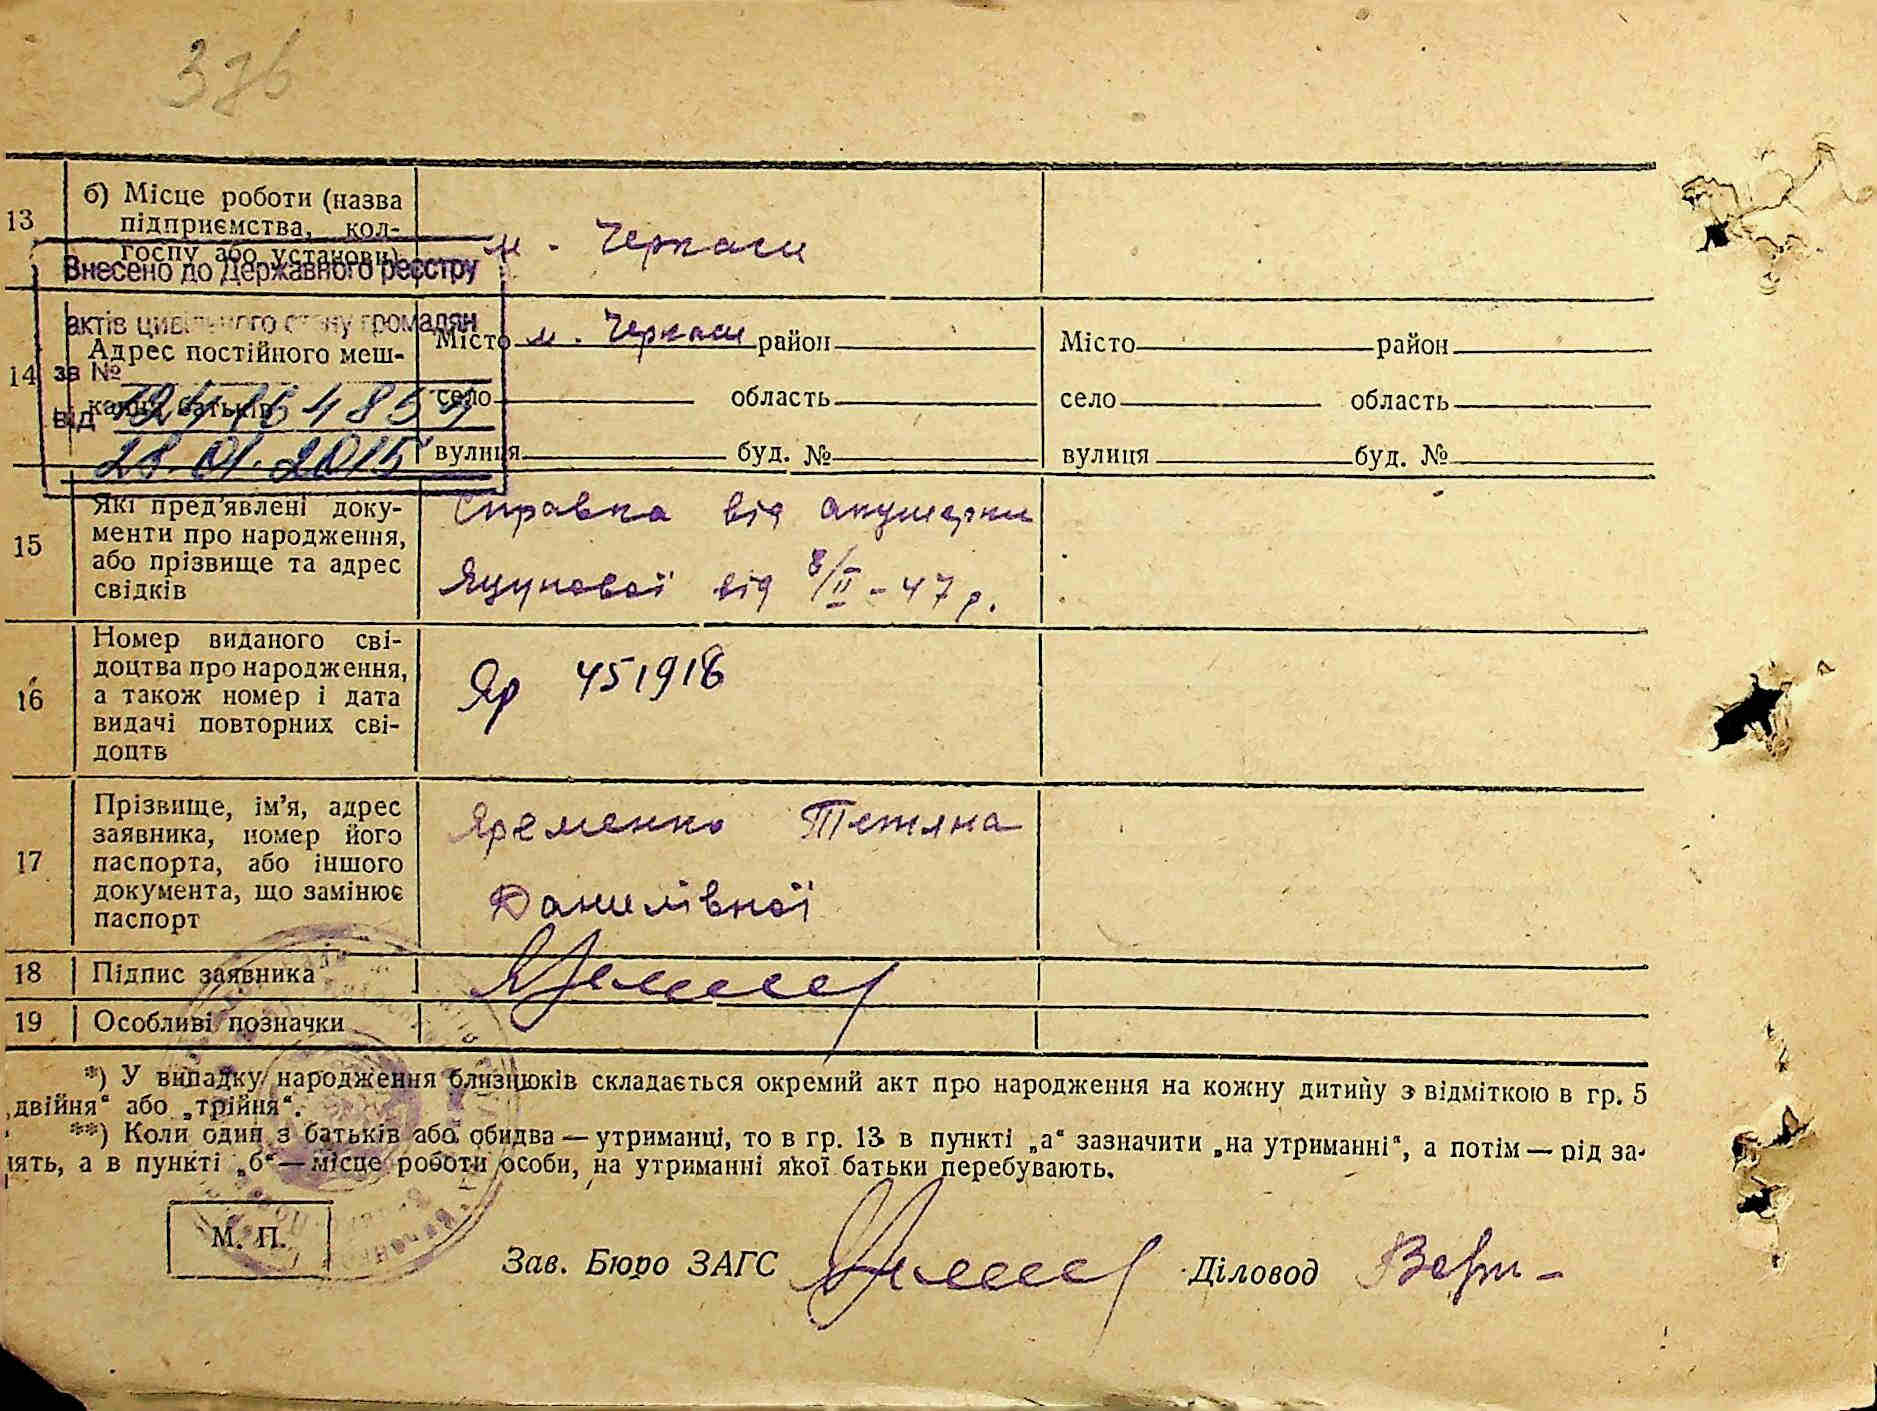 376
13
б) Місце роботи (назва
підприємства, кол-
госпу або установи)
м. Черкаси
Внесено до Державного реєстру
актів цивільного стану громадян
за №
від
28.01.2015
14
Адрес постійного меш-
кання батьків
Місто м. Черкаси район
село область
вулиця буд. №
Місто район
село область
вулиця буд. №
15
Які пред'явлені доку-
менти про народження,
або прізвище та адрес
свідків
Справка від акушерки
Яцунової від 8/II-47 р.
16
Номер виданого сві-
доцтва про народження,
а також номер і дата
видачі повторних сві-
доцтв
Яр 451918
17
Прізвище, ім'я, адрес
заявника, номер його
паспорта, або іншого
документа, що замінює
паспорт
Яременко Тетяна
Данилівної
18
Підпис заявника
19
Особливі позначки
*) У випадку народження близнюків складається окремий акт про народження на кожну дитину з відміткою в гр. 5
„двійня“ або „трійня“.
**) Коли один з батьків або обидва — утриманці, то в гр. 13 в пункті „а“ зазначити „на утриманні“, а потім — рід за-
нять, а в пункті „б“ — місце роботи особи, на утриманні якої батьки перебувають.
М. П.
Зав. Бюро ЗАГС
Діловод